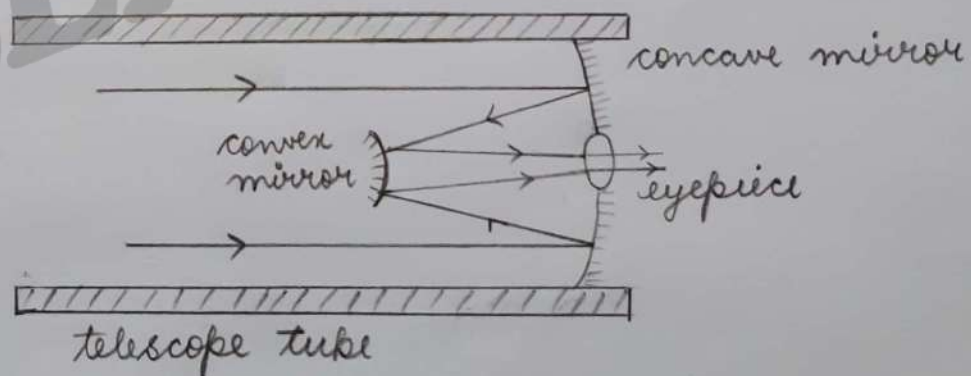 concave mirror
convex
mirror
eyepiece
telescope tube